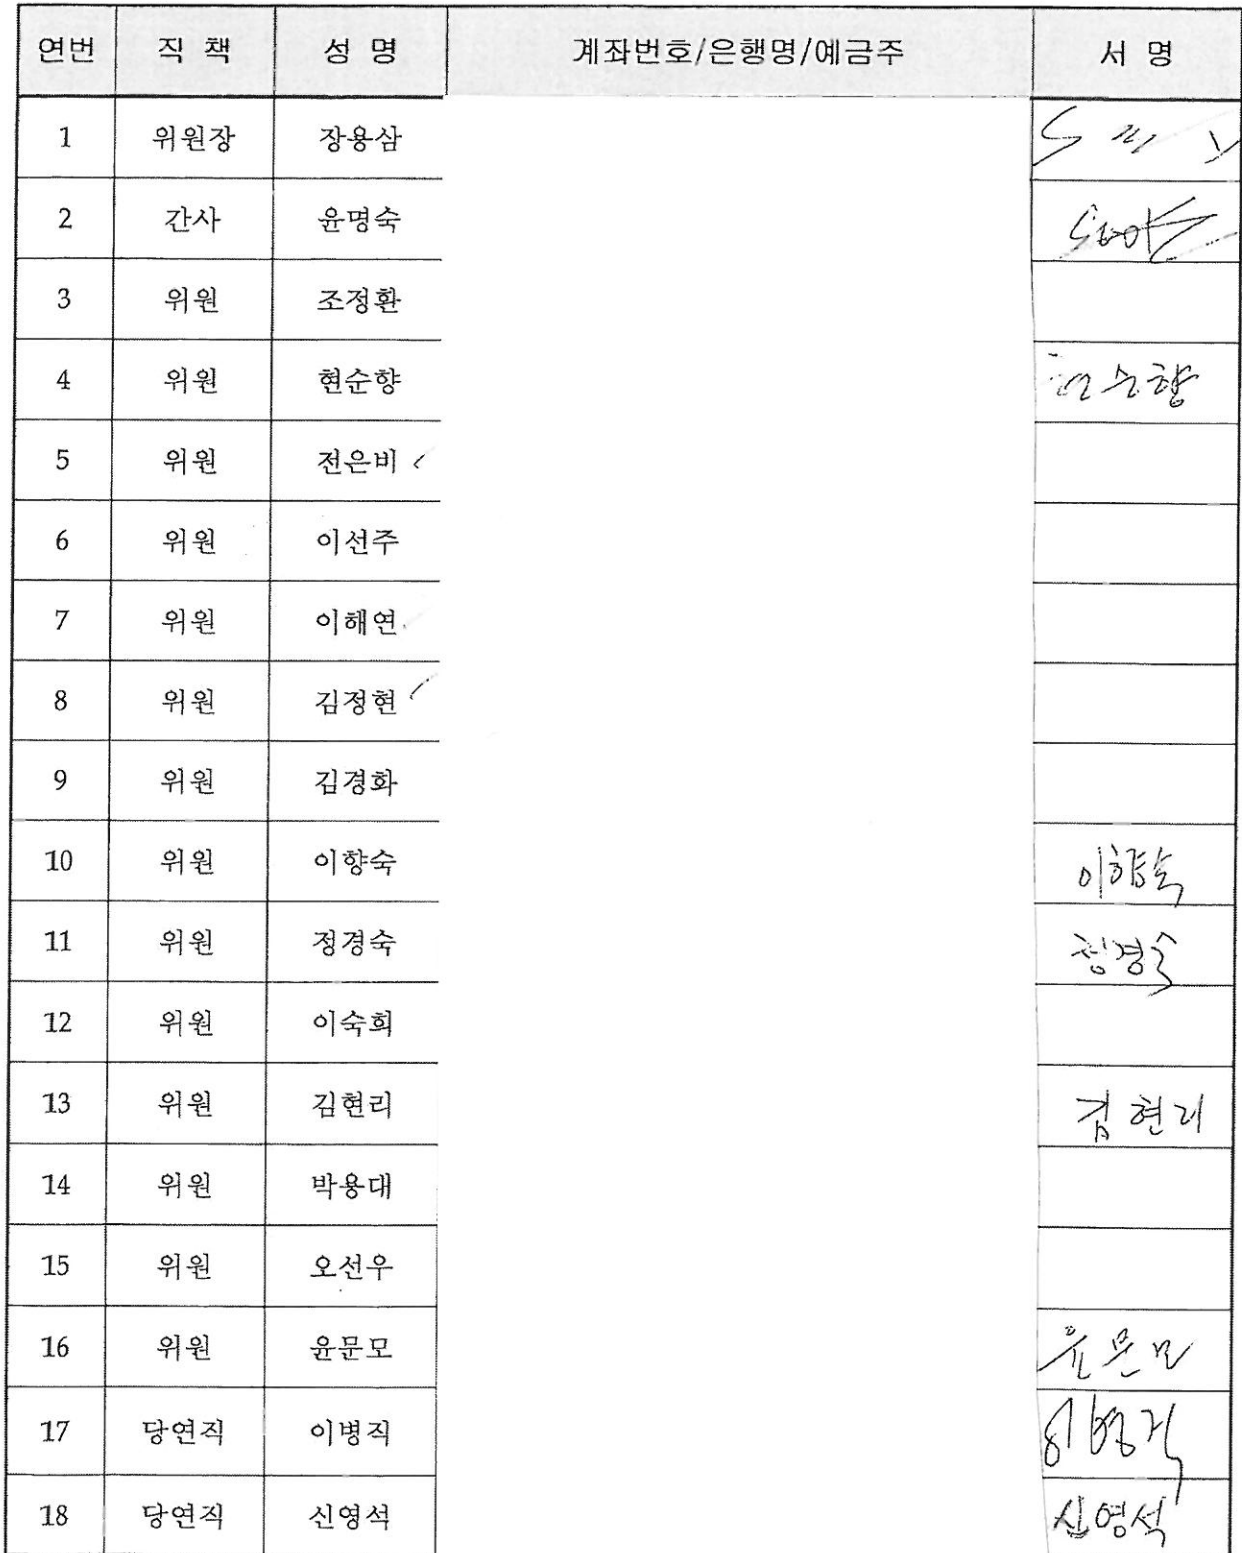 연번 직 책 성 명 계좌번호/은행명/예금주 서 명
1 위원장 장용삼
2 간사 윤명숙
3 위원 조정환
4 위원 현순향 현순향
5 위원 전은비
6 위원 이선주
7 위원 이해연
8 위원 김정현
9 위원 김경화
10 위원 이향숙 이향숙
11 위원 정경숙 정경숙
12 위원 이숙희
13 위원 김현리 김현리
14 위원 박용대
15 위원 오선우
16 위원 윤문모 윤문모
17 당연직 이병직 이병직
18 당연직 신영석 신영석